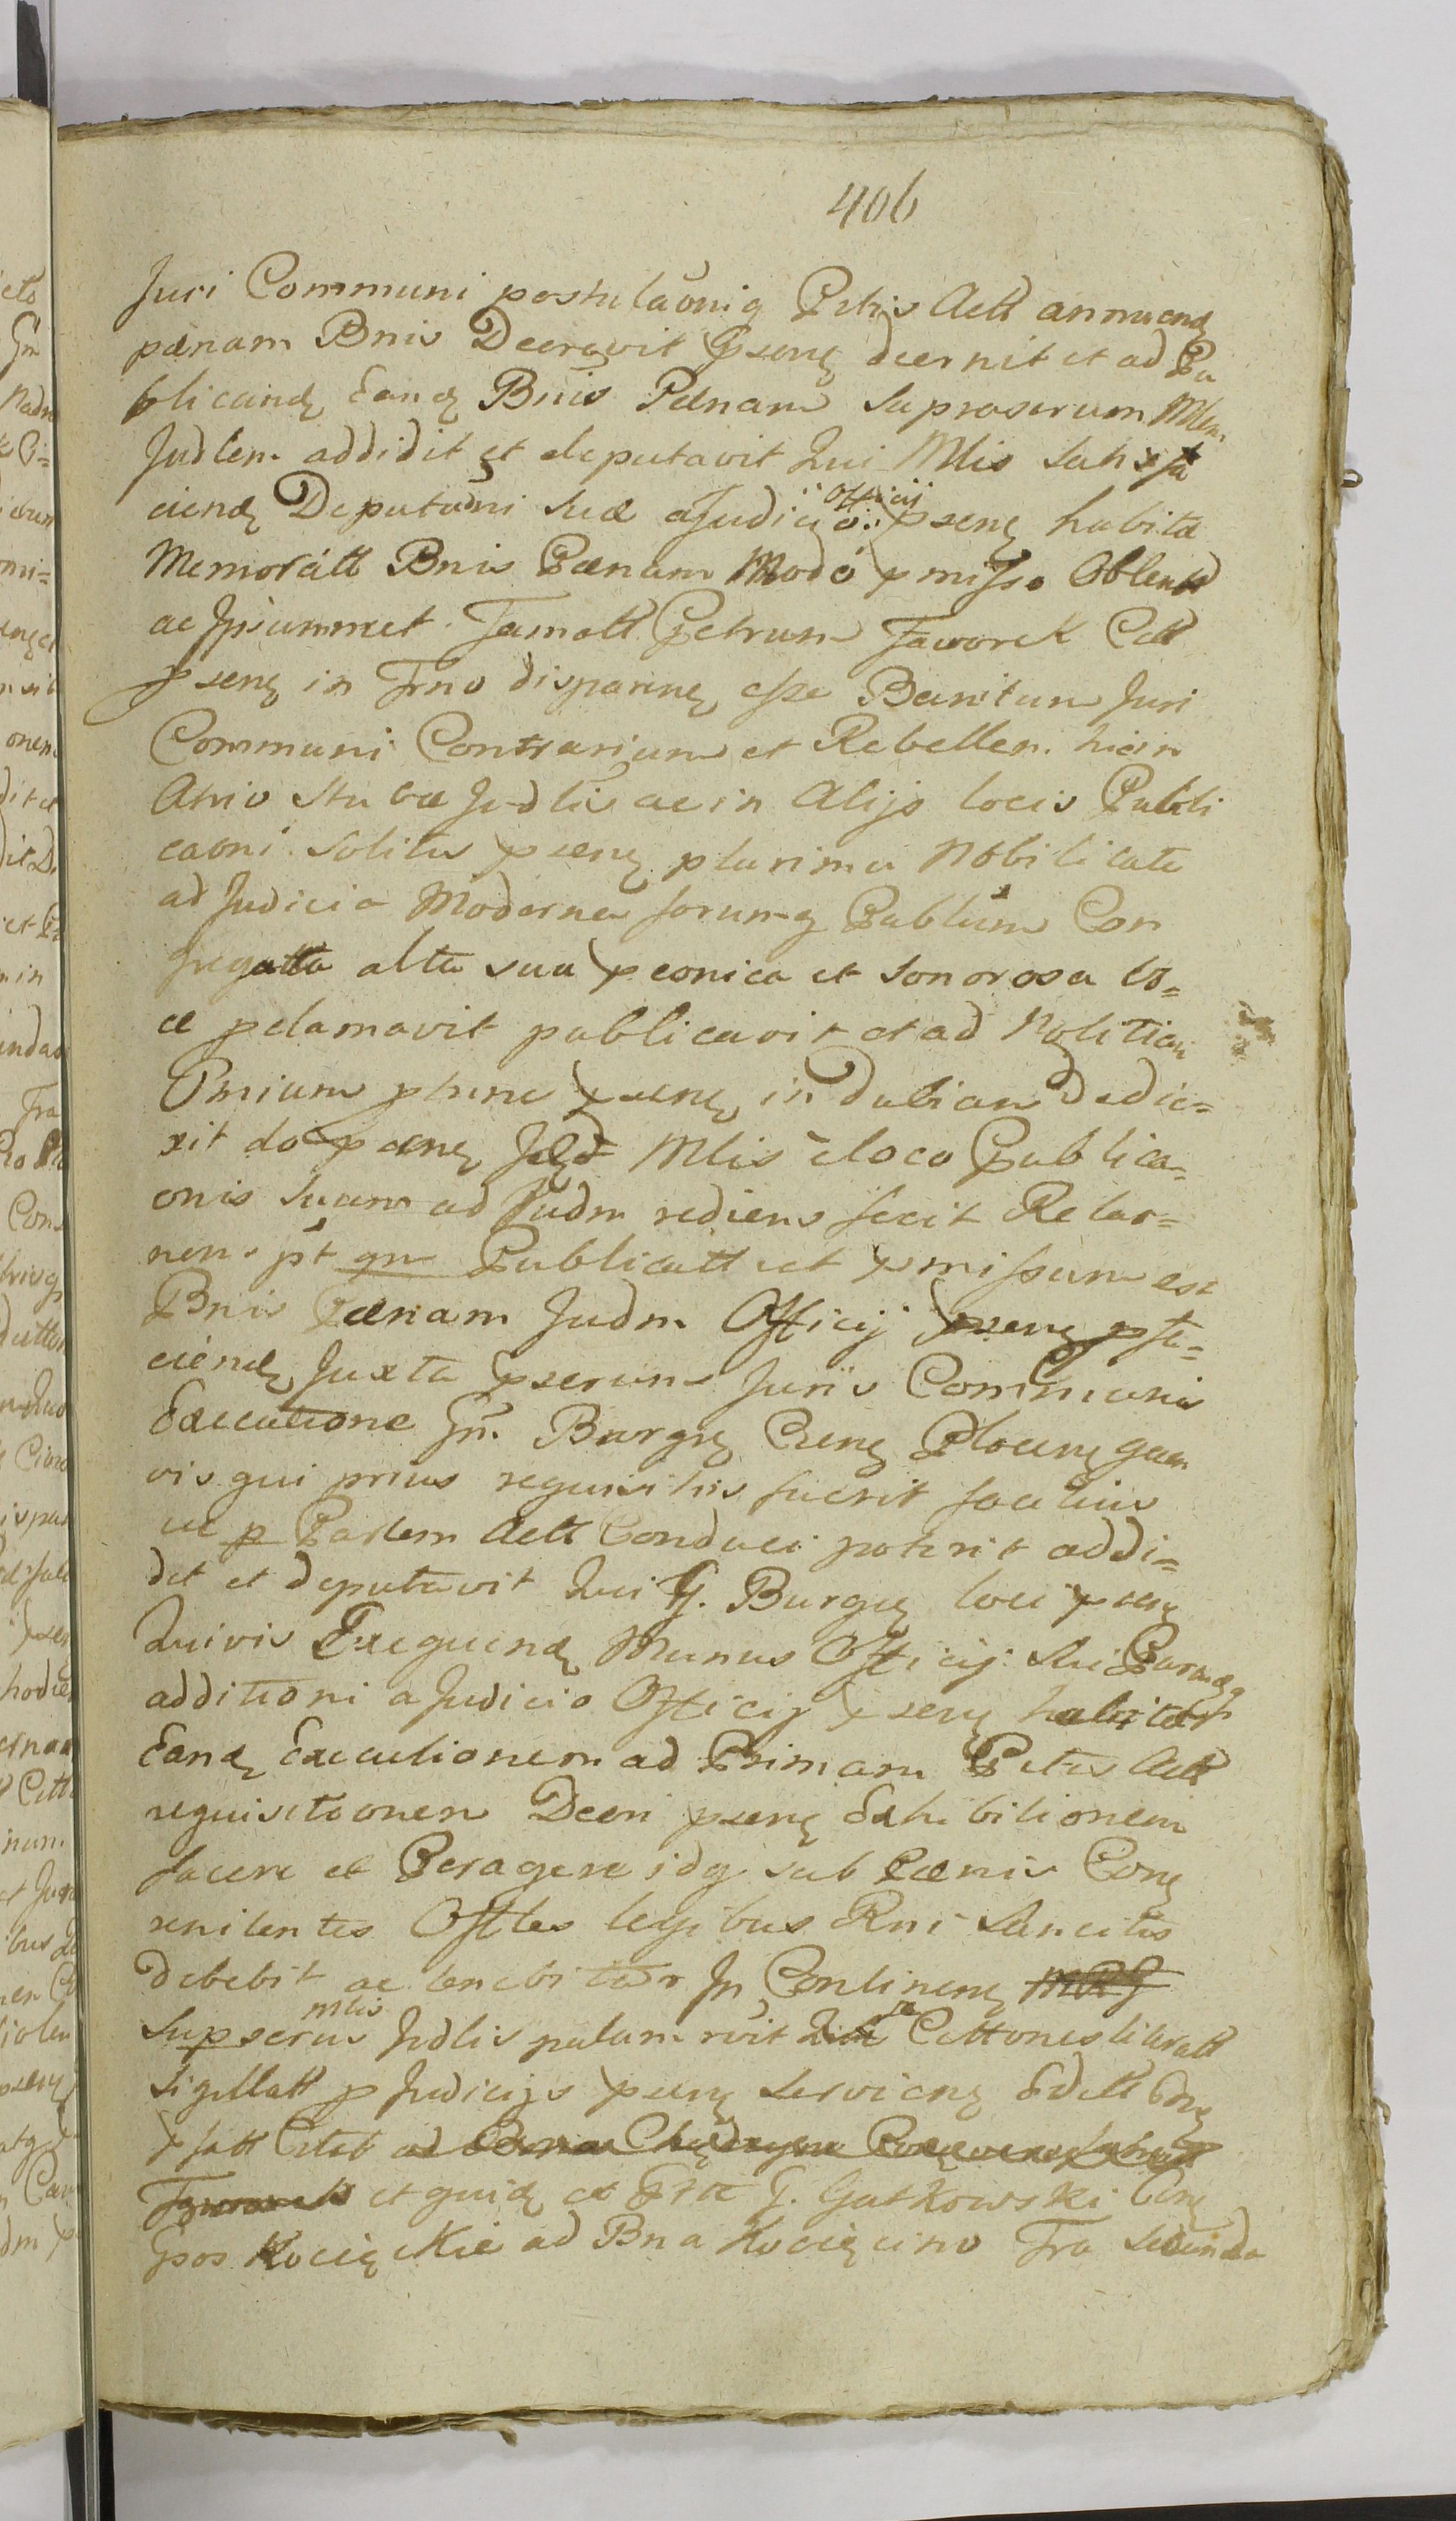 406
Juri Communi postulaoniq Ptis Actt annuend
pænam Bnis Decrevit psenę decernit et ad Pu
blicandę Eandę Bnis Pænam supraserum Mlem
Judlem addidit et deputavit Qui Mlis satisfa
ciendę Deputaõni suæ a Judicio Officij psenę habitæ
Memoratt Bnis Pænam Modo pmisso Oblentt
ac Ipsummet Famatt Petrum Jaworek Citt
psenę in Trno disparenę esse Banitum Juri
Communi Contrarium et Rebellem hic in
Atrio stubæ Judlis ac in Alijs locis Publi
caoni solitis psenę plurima Nobilitate
ad Judicia Moderna forumq Publum Con
gregatta alta sua pconica et sonorosa vo=
ce pclamavit publicavit et ad Notitiam
Omium phinc psenę indubiam Deduc=
xit de pænę Mlis e loco Publica=
onis suam ad Judm rediens fecit Relao=
nem pt qm Publicatt uct pmissum est
Bnis Pænam Judm Officij psenę pfi=
ciendę Juxta pserum Juris Communis
Executione Gn. Burgę Crenę Plocenę quem
vis qui prius requisitus fuerit facilius
ve p Partem Actt Conduci poterit addi=
dit et deputavit Qui G. Burgę loci psenę
Quivis Exequendę Munus Officij sui Parendę
additioni a Judicio Officij psenę habitæ
Eandę Executionem ad Primam Ptis Actt
requisitionem Decri psenę Exhibitionem
facere et Peragere idq sub Pænis Conę
renitentes Offles legibus Rni sancitis
debebit ac tenebitur In Continenę
supserus mlis Judlis palam rcvit Cittones literatt
sigillatt p Judicijs psenę servienę Edett
et quidę ex Prte G. Gutkowski
Gsos Kocięckie ad Bna Kocięcino Fra Secunda